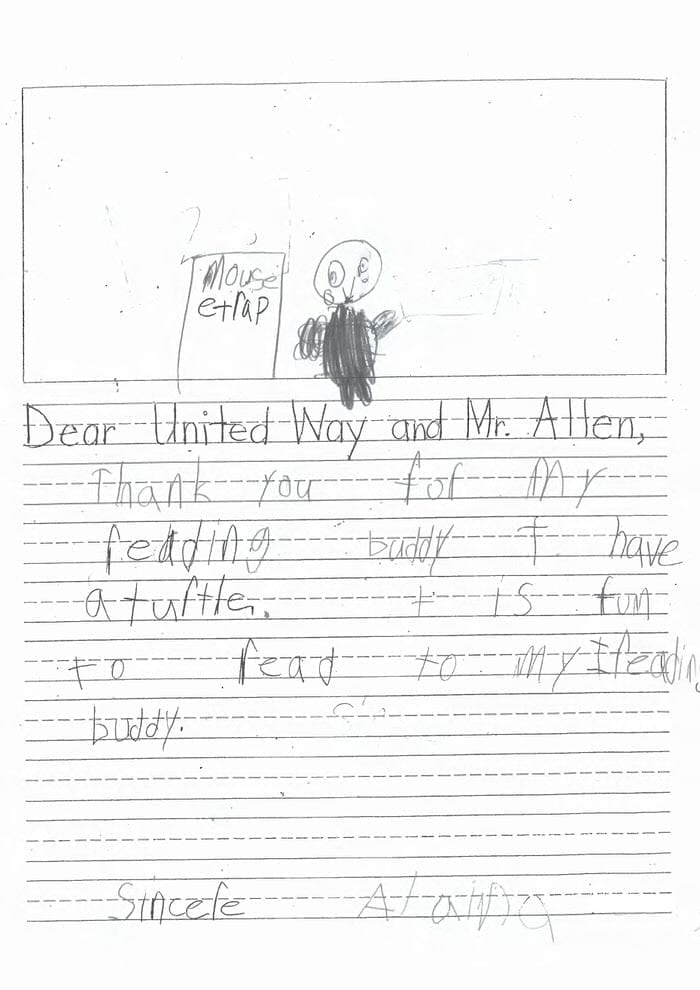 Mouse
etrap
Dear United Way and Mr. Allen,
Thank you for my
reading buddy I have
a turtle. t is fun
to read to my reading
buddy.
Sincere Alaina